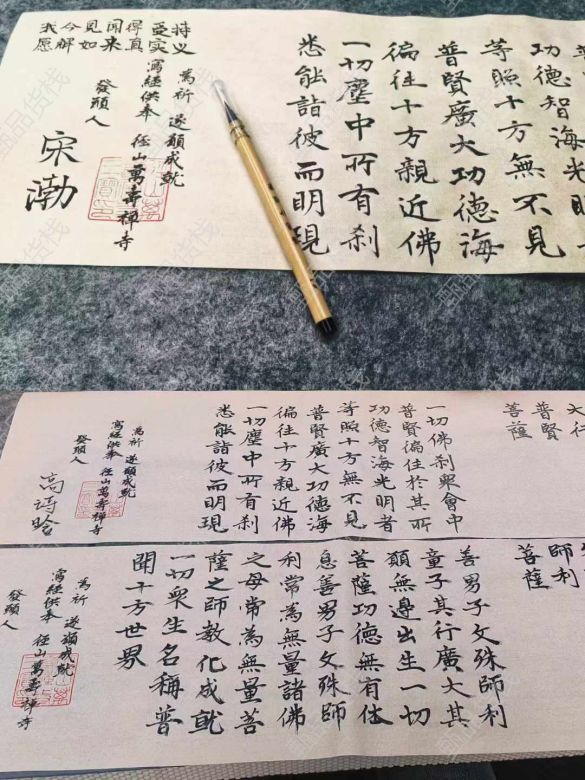 功德智海光明
等照十方無不見
普賢廣大功德海
徧往十方親近佛
一切塵中所有刹
悉能詣彼而明現
為祈 遂願成就
寫經供奉 径山萬壽禪寺
發願人
宋渤
持义
受实
得真
闻来
见如
今解
我愿
大行
普賢
菩薩
一切佛刹眾會中
普賢徧住於其所
功德智海光明者
等照十方無不見
普賢廣大功德海
徧往十方親近佛
一切塵中所有刹
悉能詣彼而明現
為祈 遂願成就
寫經供奉 径山萬壽禪寺
發願人
高詩晗
師利
菩薩
善男子文殊師利
童子其行廣大其
願無邊出生一切
菩薩功德無有休
息善男子文殊師
利常為無量諸佛
之母常為無量菩
薩之師教化成就
一切眾生名稱普
聞十方世界
為祈 遂願成就
寫經供奉 径山萬壽禪寺
發願人